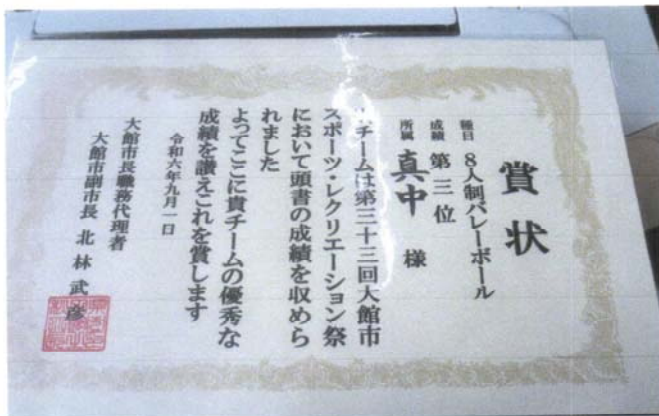 賞状
種目 8人制バレーボール
成績 第三位
所属 真中 様
チームは第三十三回大館市
スポーツ・レクリエーション祭
において頭書の成績を収めら
れました
よってここに貴チームの優秀な
成績を讃えこれを賞します
令和六年九月一日
大館市長職務代理者
大館市副市長 北林武彦